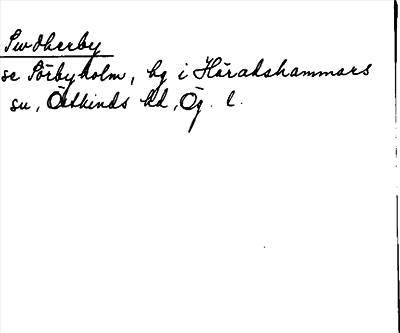 Swdherby
se Sörbyholm, hg i Häradshammars
sn, Östkinds hd, Ög. l.